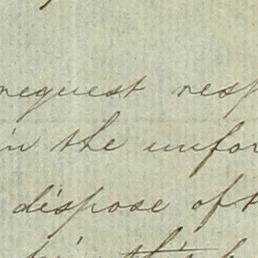 request resp
in the unfor
dispose of t